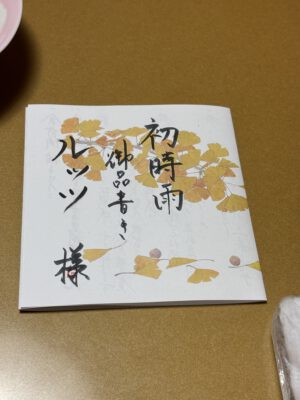 初時雨
御品書き
ルッツ 様